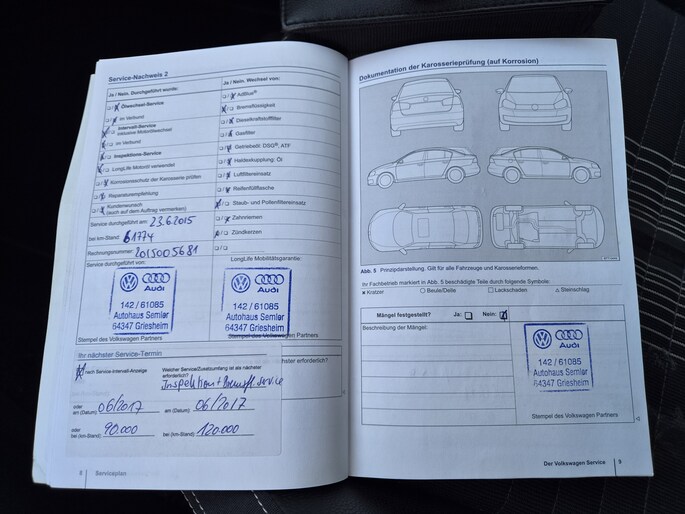 Service-Nachweis 2
Ja / Nein. Durchgeführt wurde:
Ölwechsel-Service
im Verbund
Intervall-Service
inklusive Motorölwechsel
im Verbund
Inspektions-Service
LongLife Motoröl verwendet
Korrosionsschutz der Karosserie prüfen
Reparaturempfehlung
Kundenwunsch
(auch auf dem Auftrag vermerken)
Service durchgeführt am: 23.6.2015
bei km-Stand: 61774
Rechnungsnummer: 2015005681
Service durchgeführt von:
Audi
142 / 61085
Autohaus Semler
64347 Griesheim
Stempel des Volkswagen Partners
Ja / Nein. Wechsel von:
AdBlue®
Bremsflüssigkeit
Dieselkraftstofffilter
Gasfilter
Getriebeöl: DSG®, ATF
Haldexkupplung: Öl
Luftfiltereinsatz
Reifenfüllflasche
Staub- und Pollenfiltereinsatz
Zahnriemen
Zündkerzen
LongLife Mobilitätsgarantie:
Audi
142 / 61085
Autohaus Semler
64347 Griesheim
Stempel des Volkswagen Partners
Ihr nächster Service-Termin
nach Service-Intervall-Anzeige
Welcher Service/Zusatzumfang ist als nächster
erforderlich?
Inspektion + Bremsfl. service
oder
am (Datum): 06/2017
am (Datum): 06/2017
oder
bei (km-Stand): 90.000
bei (km-Stand): 120.000
nächster erforderlich?
8 Serviceplan
Dokumentation der Karosserieprüfung (auf Korrosion)
Abb. 5 Prinzipdarstellung. Gilt für alle Fahrzeuge und Karosserieformen.
Ihr Fachbetrieb markiert in Abb. 5 beschädigte Teile durch folgende Symbole:
x Kratzer ○ Beule/Delle □ Lackschaden △ Steinschlag
Mängel festgestellt? Ja: Nein:
Beschreibung der Mängel:
Audi
142 / 61085
Autohaus Semler
64347 Griesheim
Stempel des Volkswagen Partners
Der Volkswagen Service 9